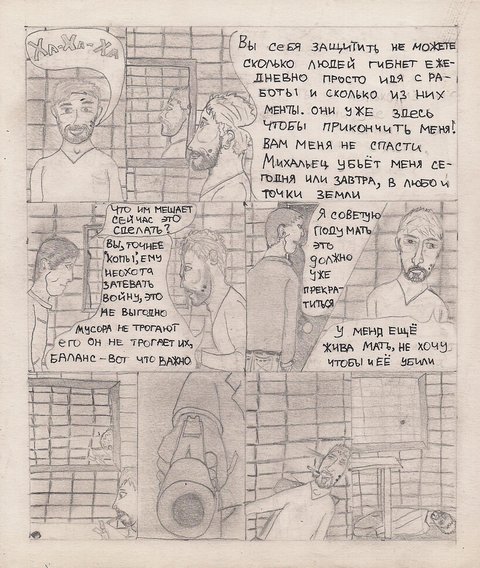 Ха-Ха-Ха
Вы себя защитить не можете
сколько людей гибнет еже-
дневно просто идя с ра-
боты и сколько из них
менты. Они уже здесь
чтобы прикончить меня!
Вам меня не спасти
Михальец убьёт меня се-
годня или завтра, в любой
точки земли
Что им мешает
сейчас это
сделать?
Вы, точнее
"копы", ему
неохота
затевать
войну, это
не выгодно
мусора не трогают
его он не трогает их,
баланс – вот что важно
Я советую
подумать
это
должно
уже
прекра-
титься
У меня ещё
жива мать, не хочу
чтобы и её убили